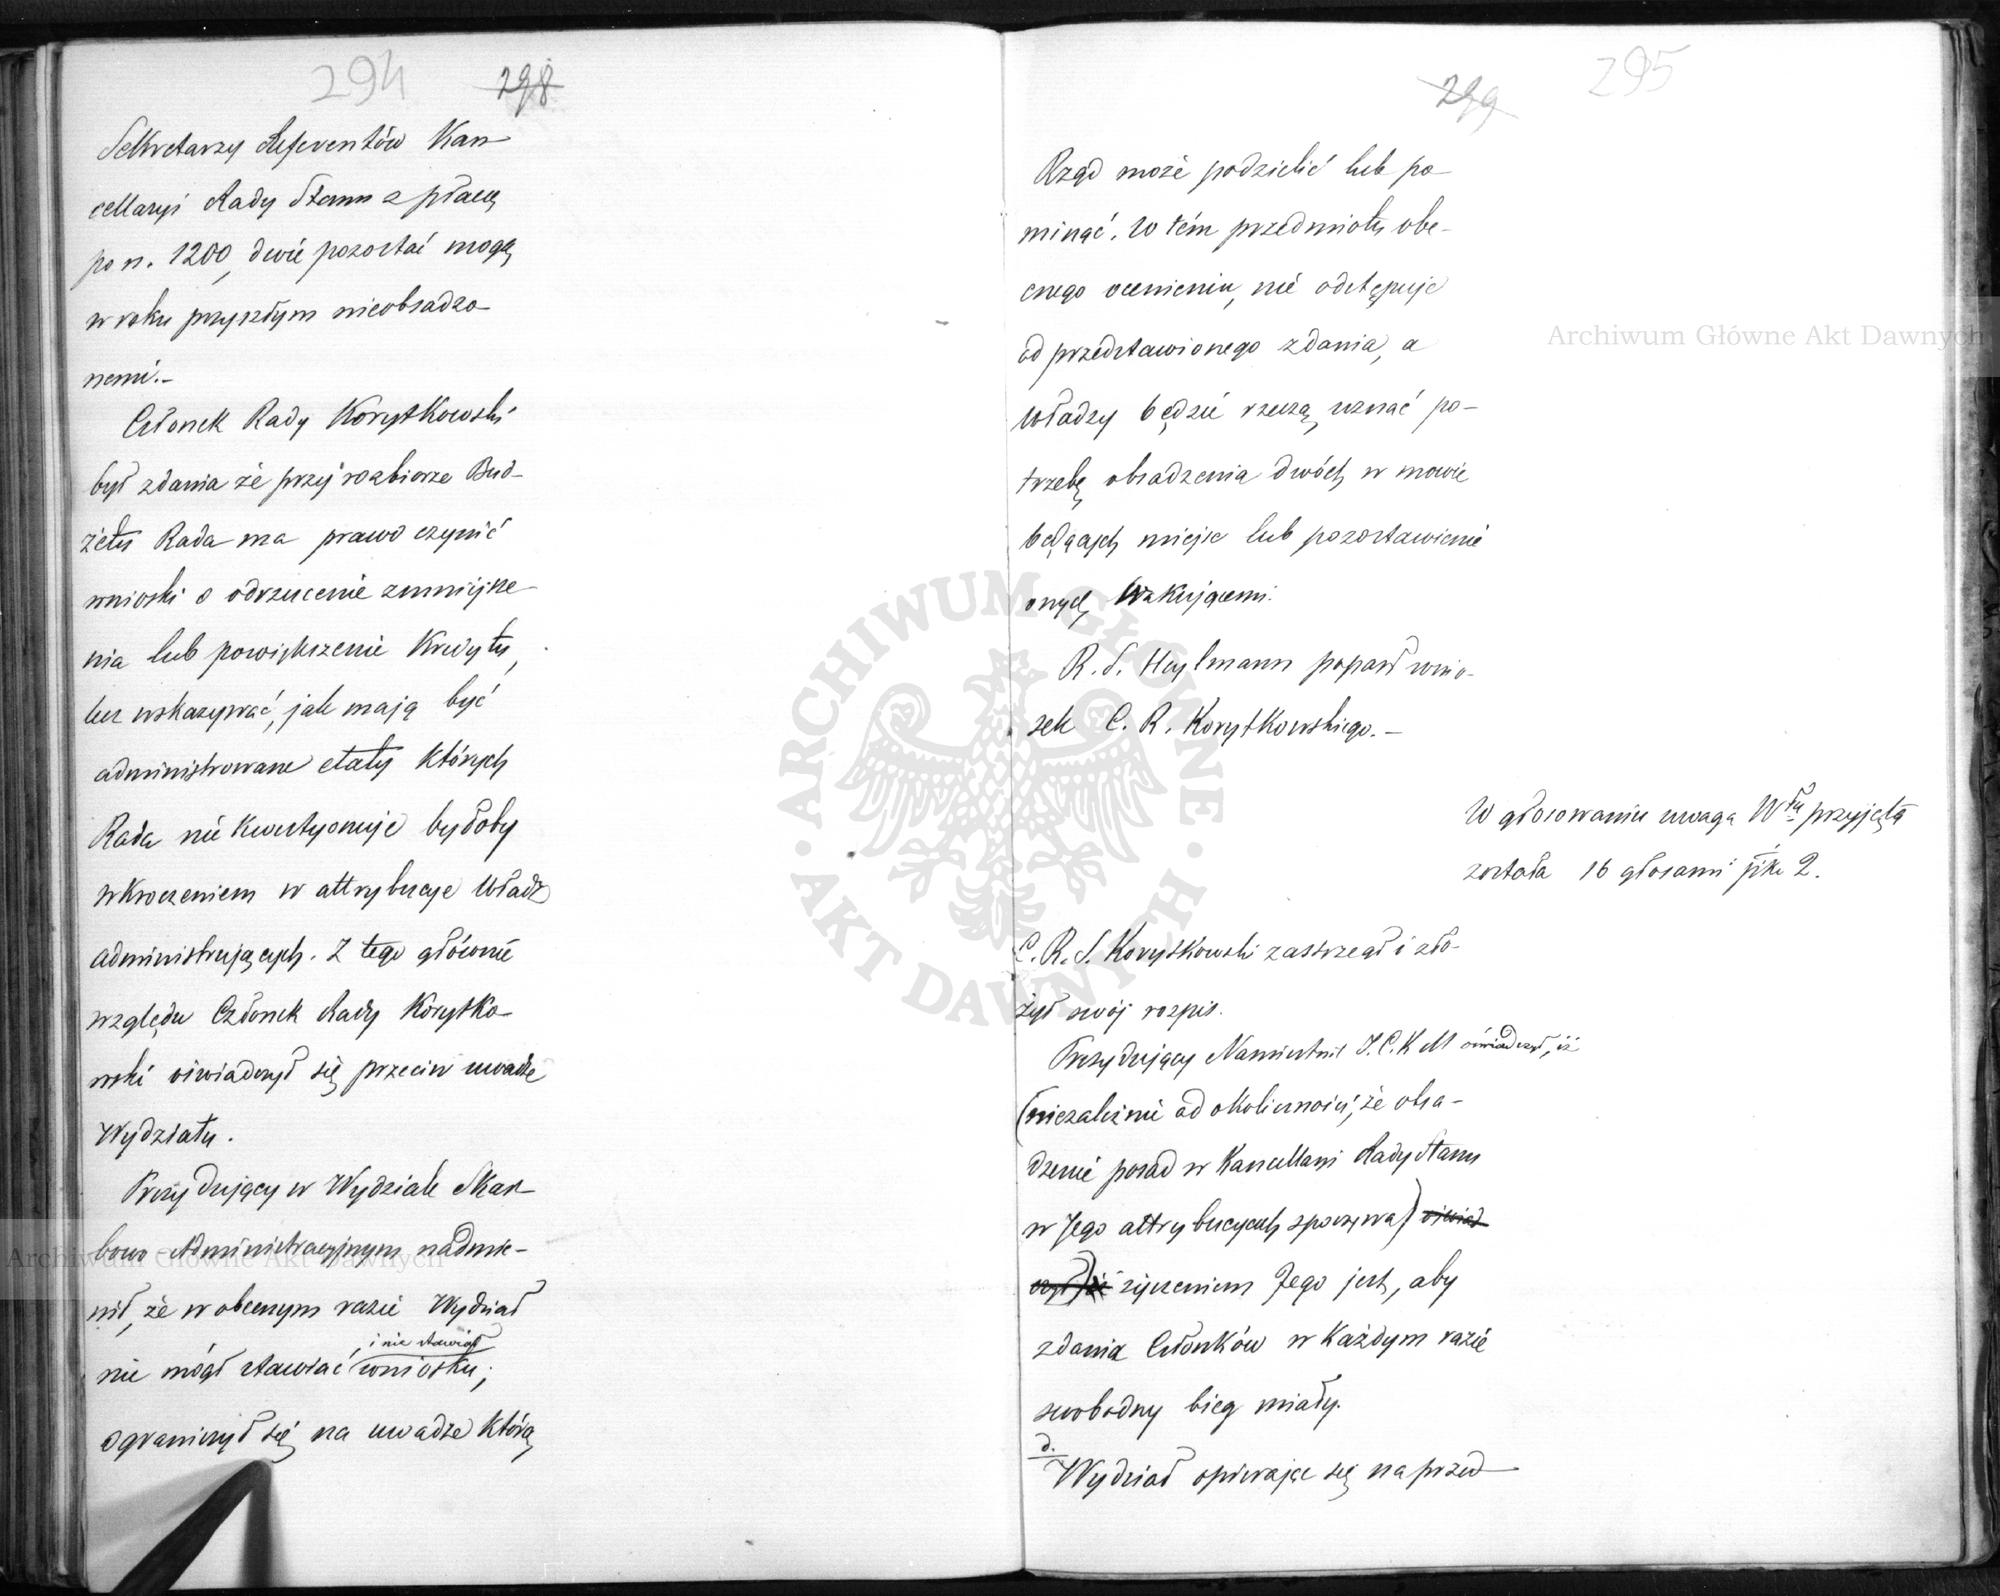 294 298
Sekretarzy Referentów Kan-
cellaryi Rady Stanu z płacą
po n. 1200, dwie pozostać mogą
w roku przyszłym nieobsadzo-
nemi.-
Członek Rady Korytkowski
był zdania że przy rozbiorze Bud-
żetu Rada ma prawo czynić
wnioski o odrzucenie zmniejsze-
nia lub powiększenie Kredytu,
lecz wskazywać, jak mają być
administrowane etaty których
Rada nie kwestyonuje byłoby
wkroczeniem w attrybucye Władz
administrujących. Z tego głównie
względu Członek Rady Korytko-
wski oświadczył się przeciw uwadze
Wydziału.
Prezydujący w Wydziale Skar-
bowo-Administracyjnym nadmie-
nił, że w obecnym razie Wydział
i nie stawiał
nie mógł stawiać wniosku;
ograniczył się na uwadze którą
299 295
Rząd może podzielić lub po-
minąć. W tém przedmiotu obe-
cnego ocenieniu, nie odstępuje
od przedstawionego zdania, a
Władzy będzie rzeczą uznać po-
trzebę obsadzenia dwóch w mowie
będących miejsc lub pozostawienie
onych wakującemi.
R. S. Heylmann poparł wnio-
sek C. R. Korytkowskiego.-
W głosowaniu uwaga Włu przyjętą
została 16 głosami 2.
C. R. S. Korytkowski zastrzegł i zło-
żył swój rozpis.
Prezydujący Namiestnik J. C. K M oświadczył, iż
(niezależnie od okoliczności, że obsa-
dzenie posad w Kancellaryi Rady Stanu
w Jego attrybucyach spoczywa) oświad
czył) iż życzeniem Jego jest, aby
zdania Członków w każdym razie
swobodny bieg miały.
d.
Wydział opierając się na przed-
Archiwum Główne Akt Dawnych
Archiwum Główne Akt Dawnych
ARCHIWUM GŁÓWNE
AKT DAWNYCH